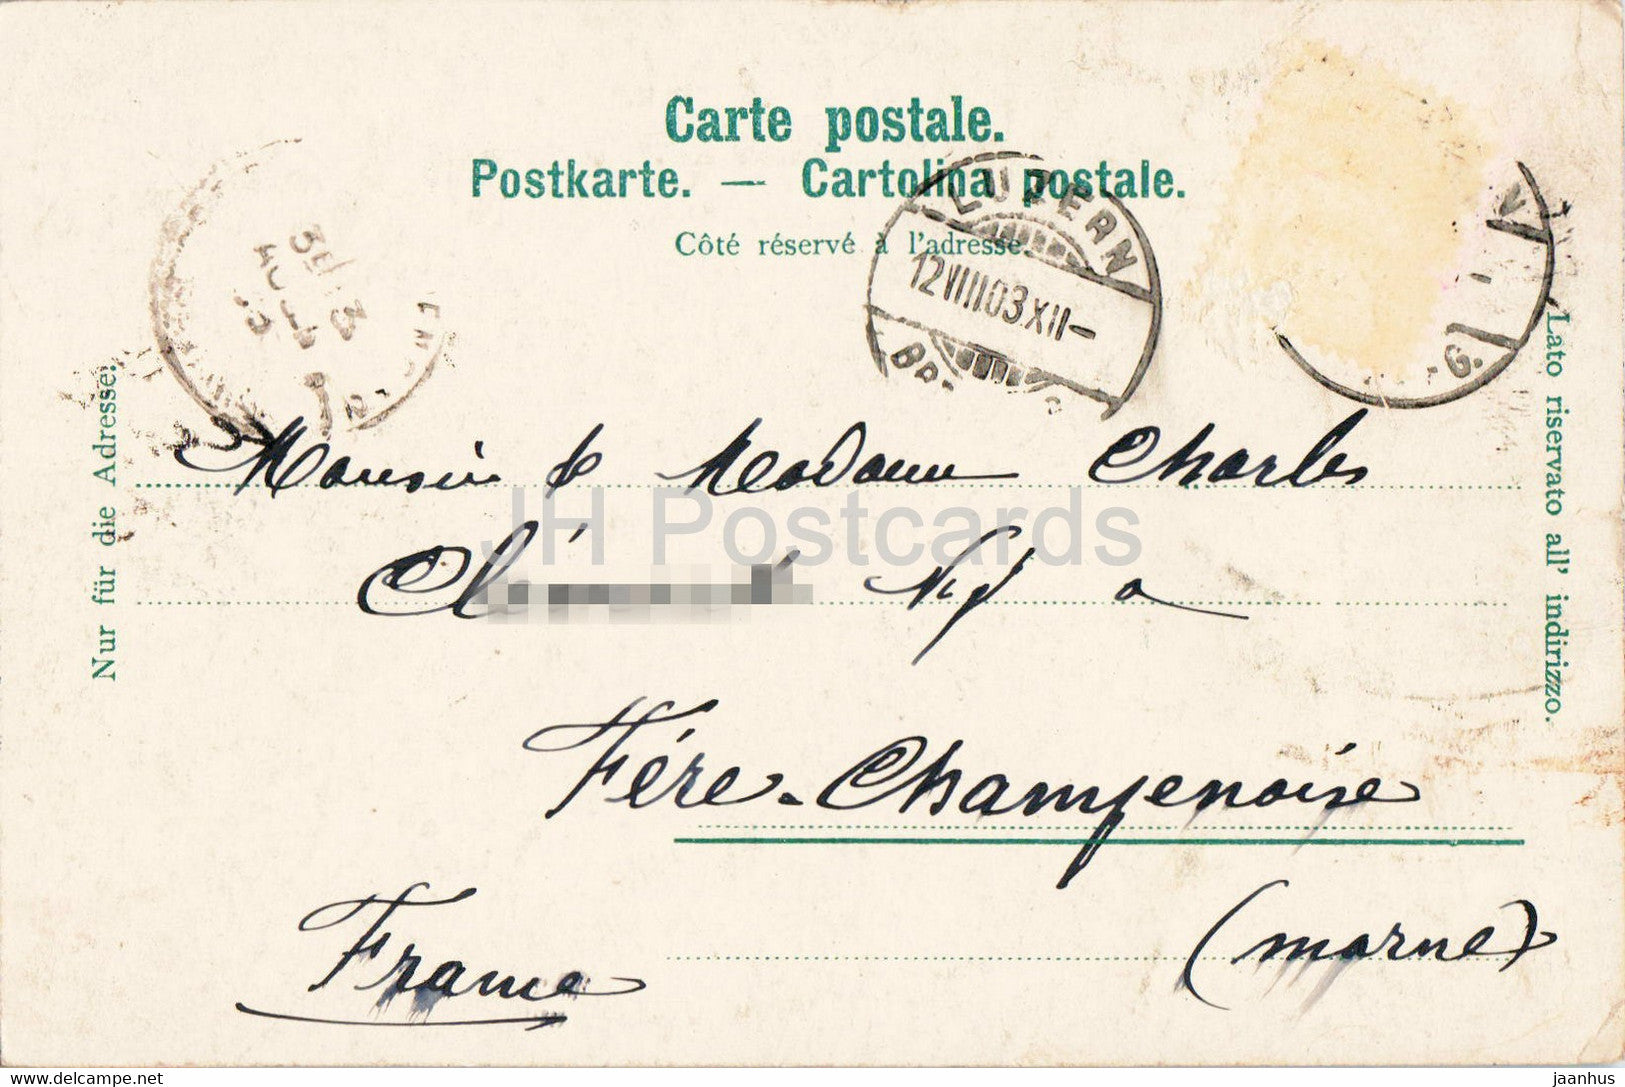 Carte postale.
Postkarte. — Cartolina postale.
Côté réservé à l'adresse.
LUZERN
12 VIII 03 XII-
V
G.
Nur für die Adresse.
Lato riservato all' indirizzo.
Monsieur & Madame Charles
Cl
à
Fère-Champenoise
(marne)
France
JH Postcards
jaanhus
delcampe.net